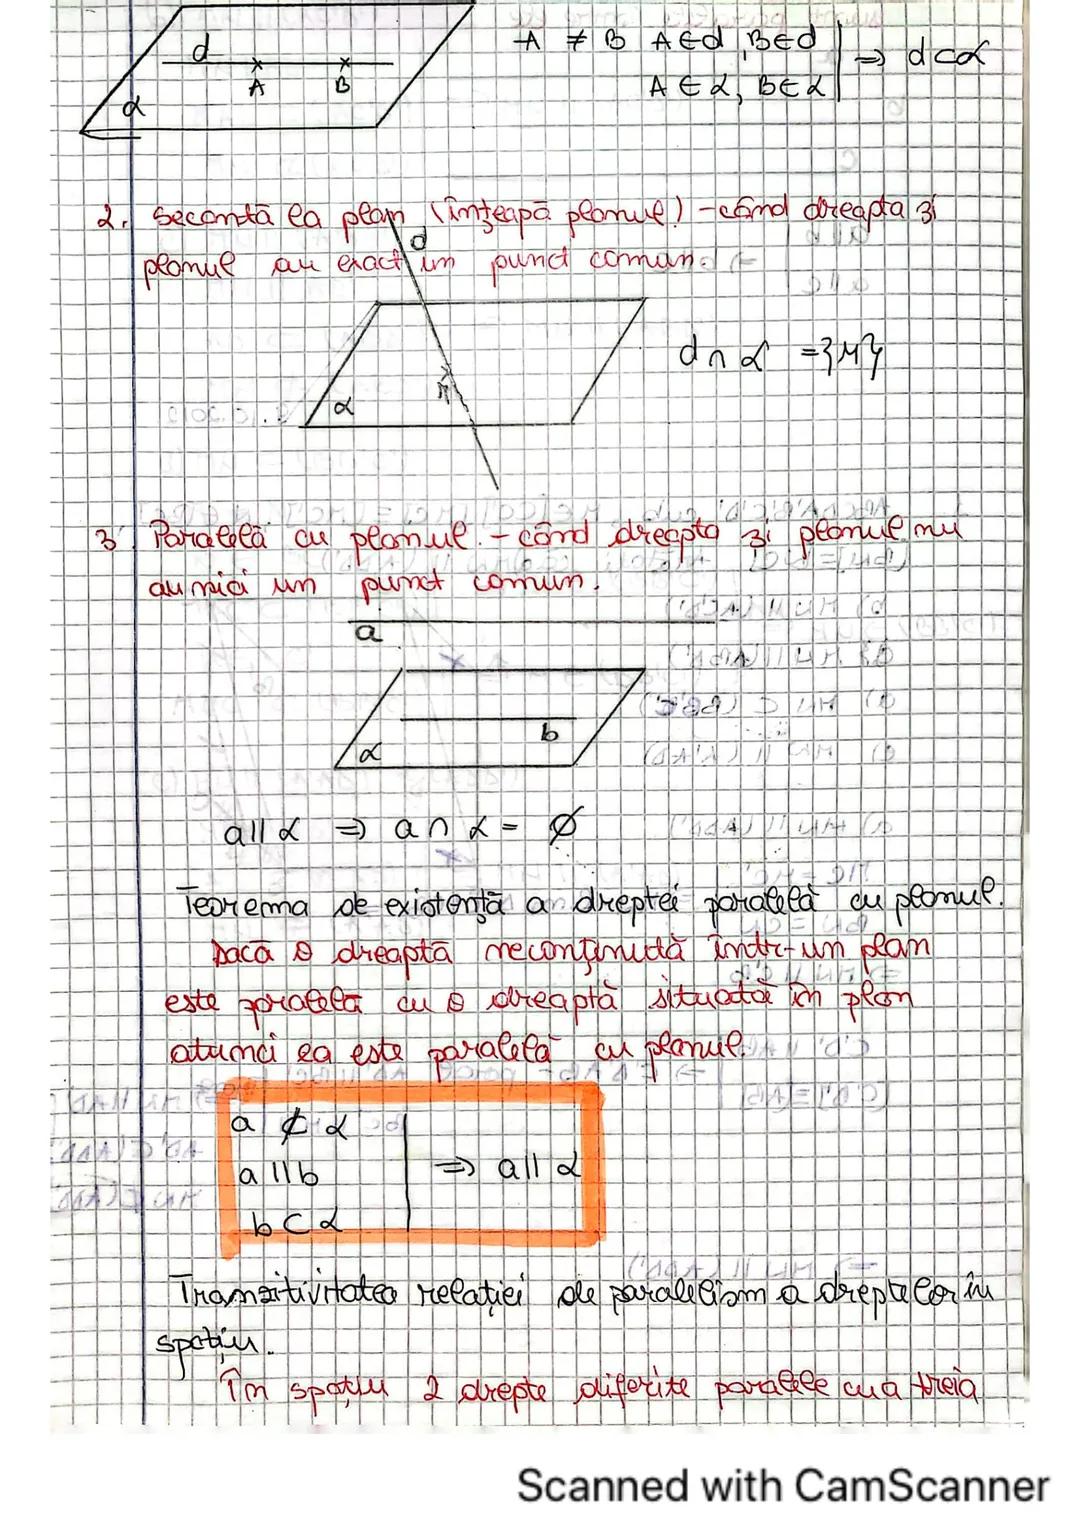 d
A
B
α
A ≠ B A∈d, B∈d
A∈α, B∈α ⇒ d⊂α
2. Secantă la plan (înțeapă planul) - când dreapta și
d
planul au exact un punct comun
d∩α = {M}
M
α
3. Paralelă cu planul. - când dreapta și planul nu
au nici un punct comun.
a
b
α
a∥α ⇒ a∩α = ∅
Teorema de existență a dreptei paralelă cu planul.
Dacă o dreaptă neconținută într-un plan
este paralelă cu o dreaptă situată în plan
atunci ea este paralelă cu planul
a ⊄ α
a∥b ⇒ a∥α
b⊂α
Tranzitivitatea relației de paralelism a dreptelor în
spațiu.
În spațiu 2 drepte diferite paralele cu a treia
Scanned with CamScanner